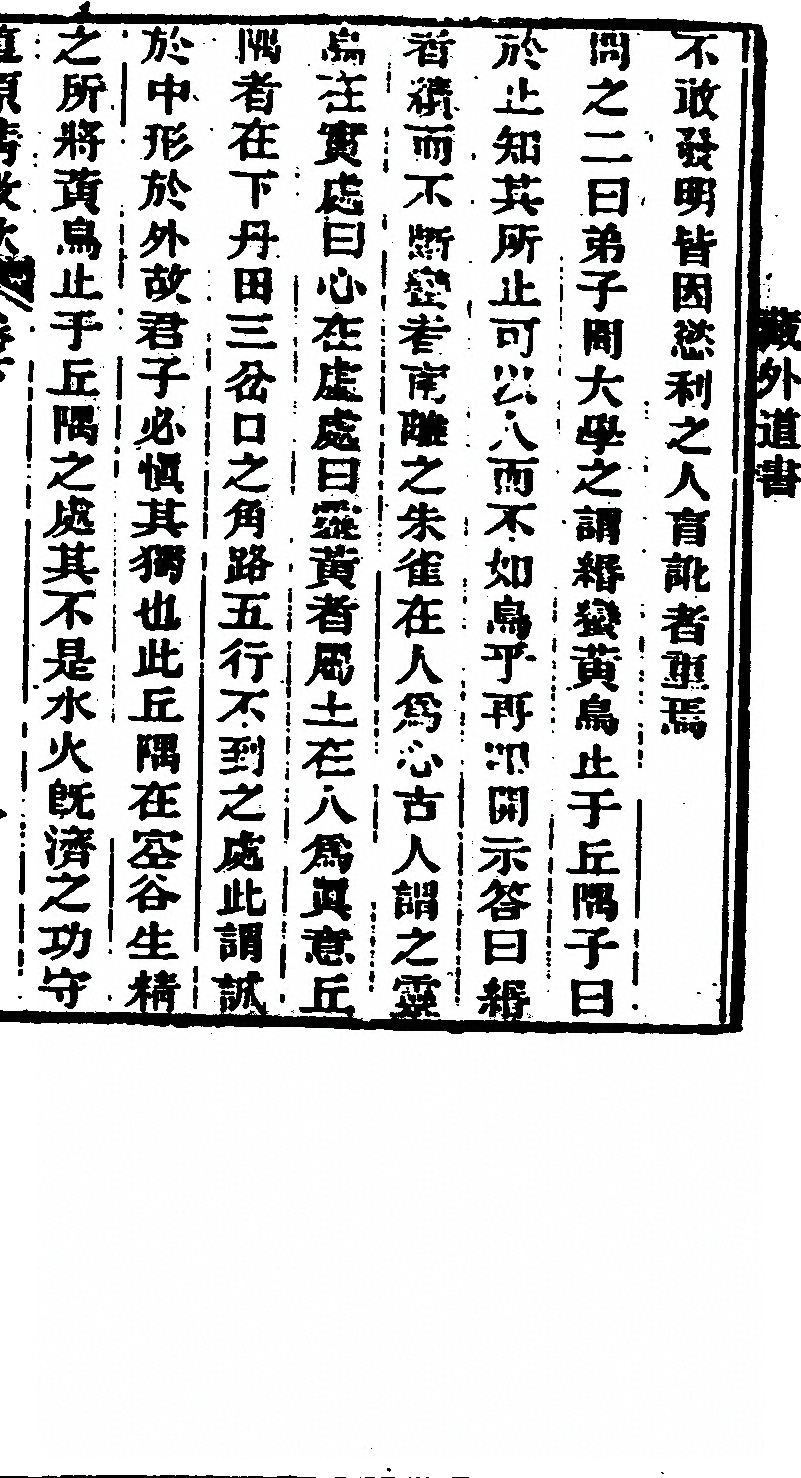 藏外道書
不敢發明皆因慾利之人育訛者重焉
問之二曰弟子聞大學之謂緡蠻黃鳥止于丘隅子曰
於止知其所止可以人而不如鳥乎再叩開示答曰緡
者續而不斷蠻者南離之朱雀在人為心古人謂之靈
鳥在實處曰心在虛處曰靈黃者屬土在人為眞意丘
隅者在下丹田三岔口之角路五行不到之處此謂誠
於中形於外故君子必愼其獨也此丘隅在空谷生精
之所將黃鳥止于丘隅之處其不是水火旣濟之功守